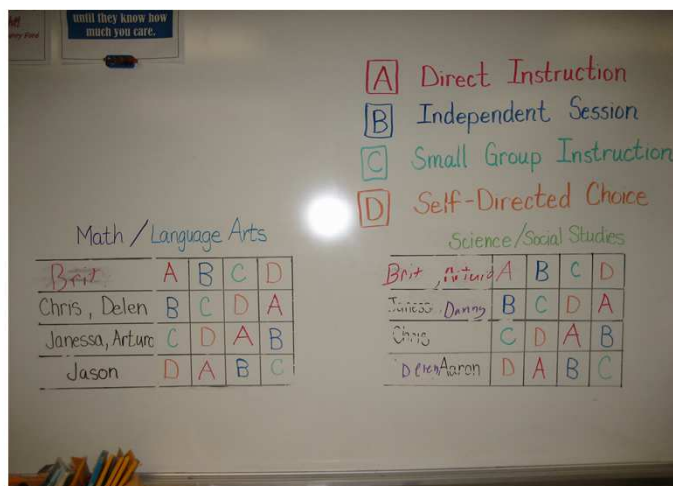 until they know how
much you care.
A Direct Instruction
B Independent Session
C Small Group Instruction
D Self-Directed Choice
Math / Language Arts
Brit A B C D
Chris, Delen B C D A
Janessa, Arturo C D A B
Jason D A B C
Science/Social Studies
Brit, A B C D
Danny B C D A
Chris C D A B
Delen Aaron D A B C